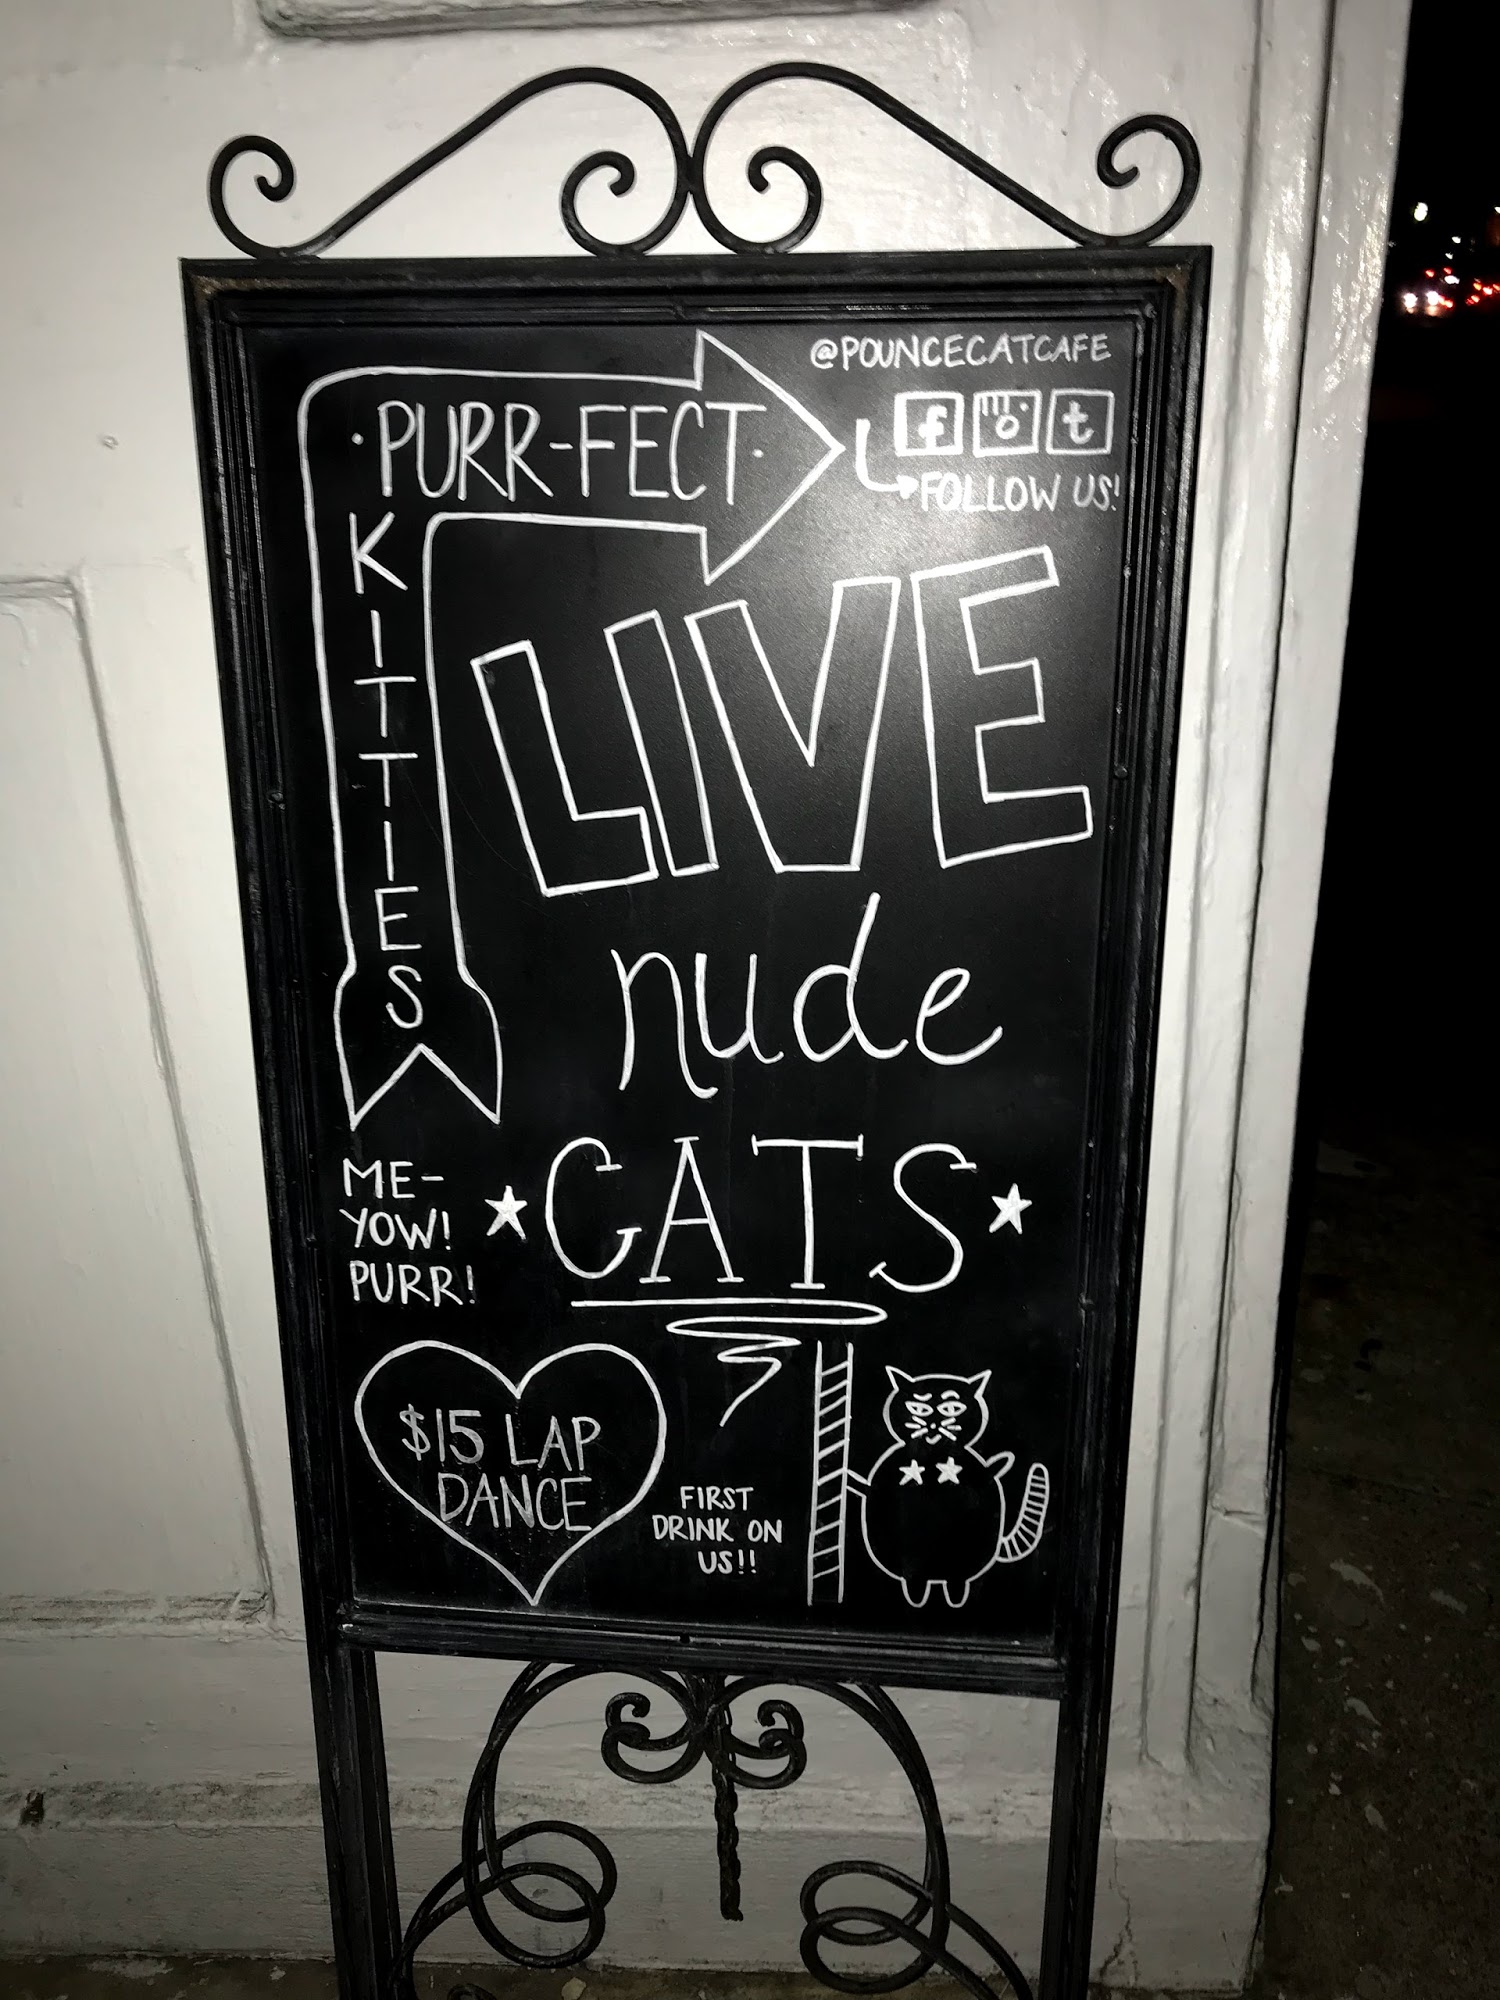 @POUNCECATCAFE
f t
FOLLOW US!
PURR-FECT
KITTIES
LIVE
nude
CATS
ME-
YOW!
PURR!
$15 LAP
DANCE
FIRST
DRINK ON
US!!